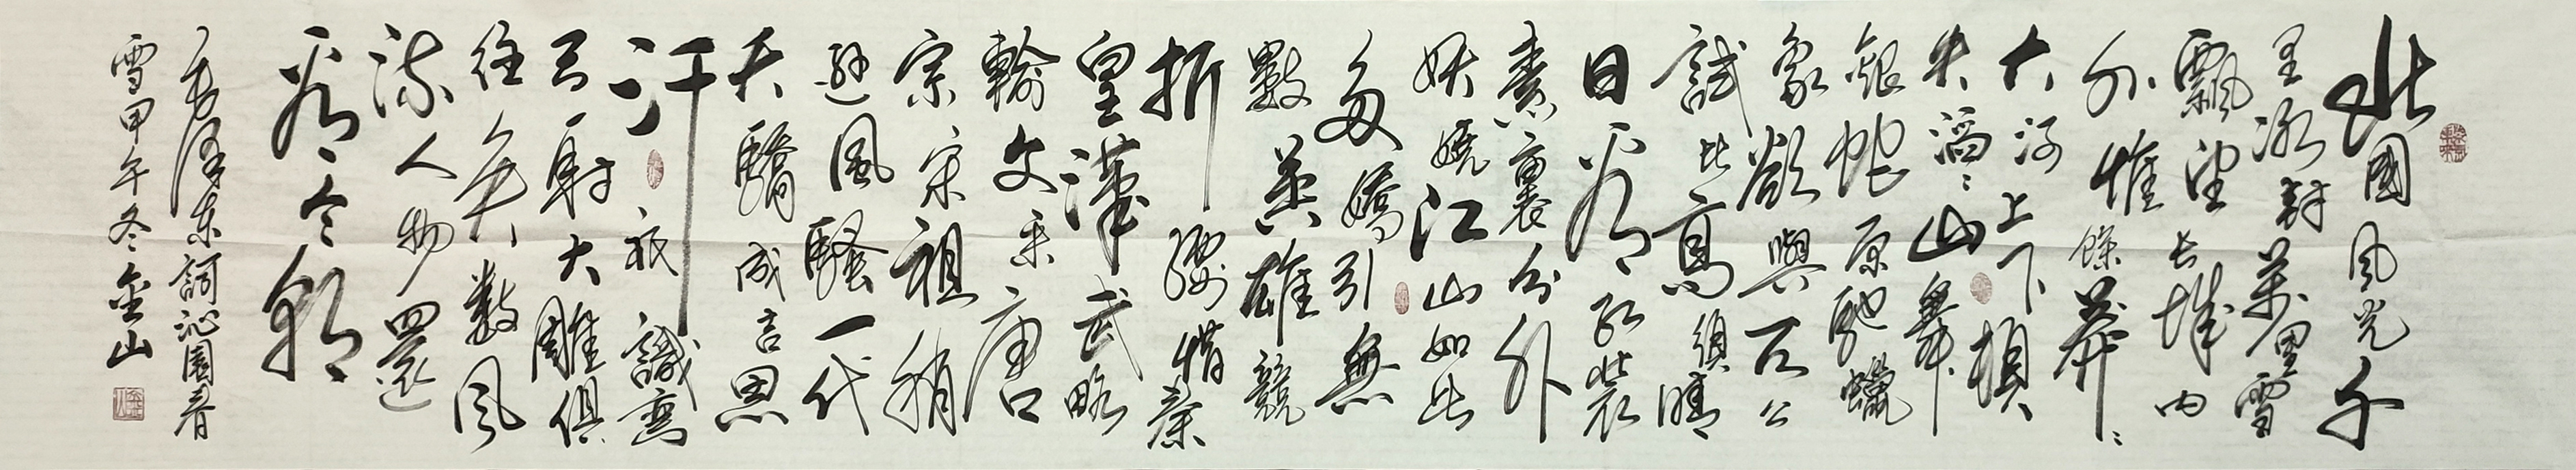 北國風光千
里冰封萬里雪
飄望長城內
外惟餘莽〻
大河上下頓
失滔〻山舞
銀蛇原馳蠟
象欲與天公
試比高須晴
日看紅裝
素裹分外
妖嬈江山如此
多嬌引無
數英雄競
折腰惜秦
皇漢武略
輸文采唐
宗宋祖稍
遜風騷一代
天驕成吉思
汗祇識彎
弓射大雕俱
往矣數風
流人物還
看今朝
毛澤東詞沁園春
雪甲午冬金山